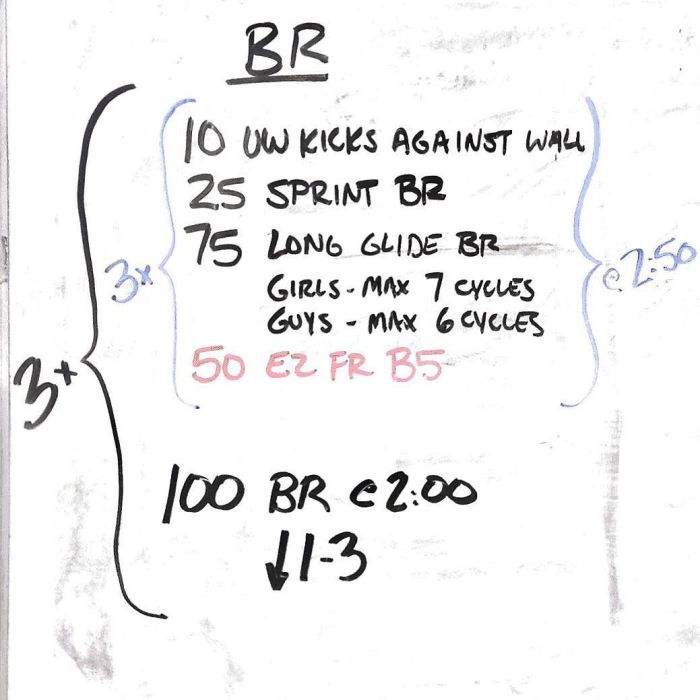 BR
10 UW KICKS AGAINST WALL
25 SPRINT BR
75 LONG GLIDE BR
GIRLS - MAX 7 CYCLES
GUYS - MAX 6 CYCLES
50 EZ FR B5
3x
@ 2:50
3x
100 BR @ 2:00
↓1-3